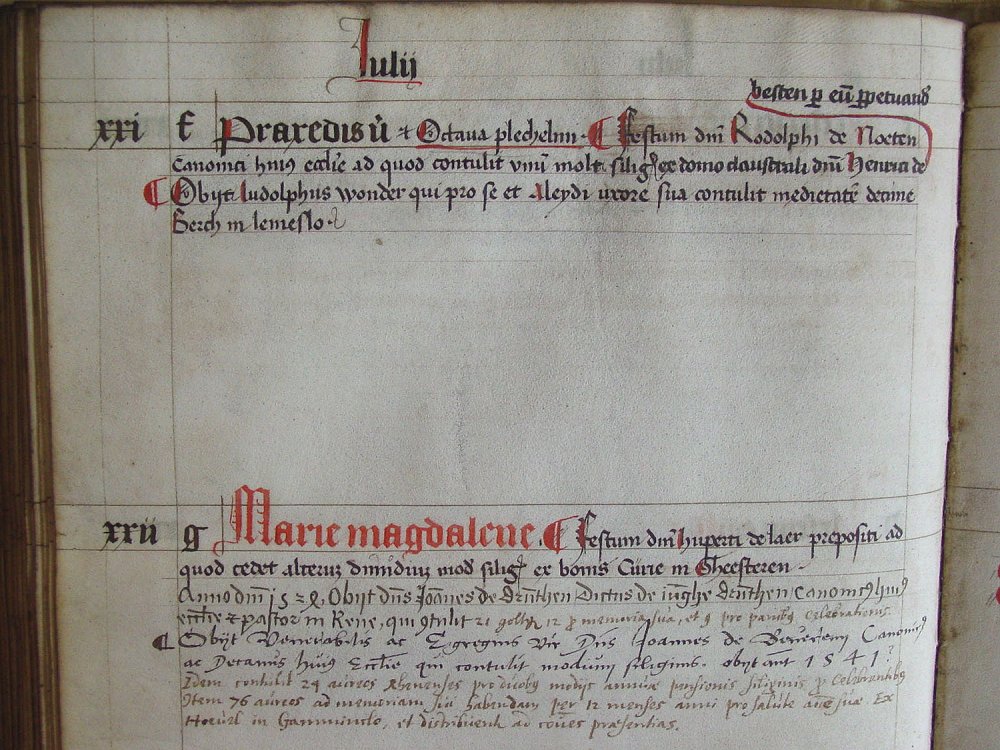 Iulij
besten p eū ppetuand
xxi f Praxedis ṽ et Octaua plechelmi ¶ Festum dm̄ Rodolphi de Noeten
Canonici huiꝰ eccłie ad quod contulit vnū molt siligꝭ ex domo claustrali dm̄ Henrici de
¶ Obijt Ludolphus wonder qui pro se et Aleydi uxore sua contulit medietatē decime
Gerch in lemeslo
xxii g Marie magdalene ¶ Festum dm̄ huperti de laer prepositi ad
quod cedet alteruz dimidiuz mod siligꝭ ex bonis Curie in Gheesteren
Anno dm̄ 1528 Obijt dn̄s Joānes de drūthen Dictus de iunghe drūthen Canonicꝰ huiꝰ
eccłie et pastor in Rene, qui 9tulit 21 golt 12 p memoria sua, et 9 pro panibꝰ Celebrationis
¶ Obijt Venerabilis ac Egregius Vir Dn̄s Joannes de Beuerem Canonicꝰ
ac Decanus huiꝰ Eccłie qui contulit modium siliginis. obijt an̄t 1541
Idem contulit 24 aureos Rhenenses pro duobꝰ modijs annuae pensionis siliginis p Celebrantibꝰ
Item 76 aureos ad memoriam sui habendam per 12 menses anni pro salute aīe suae Ex
in Gammincło, et distribuent ad cōes praesentias.